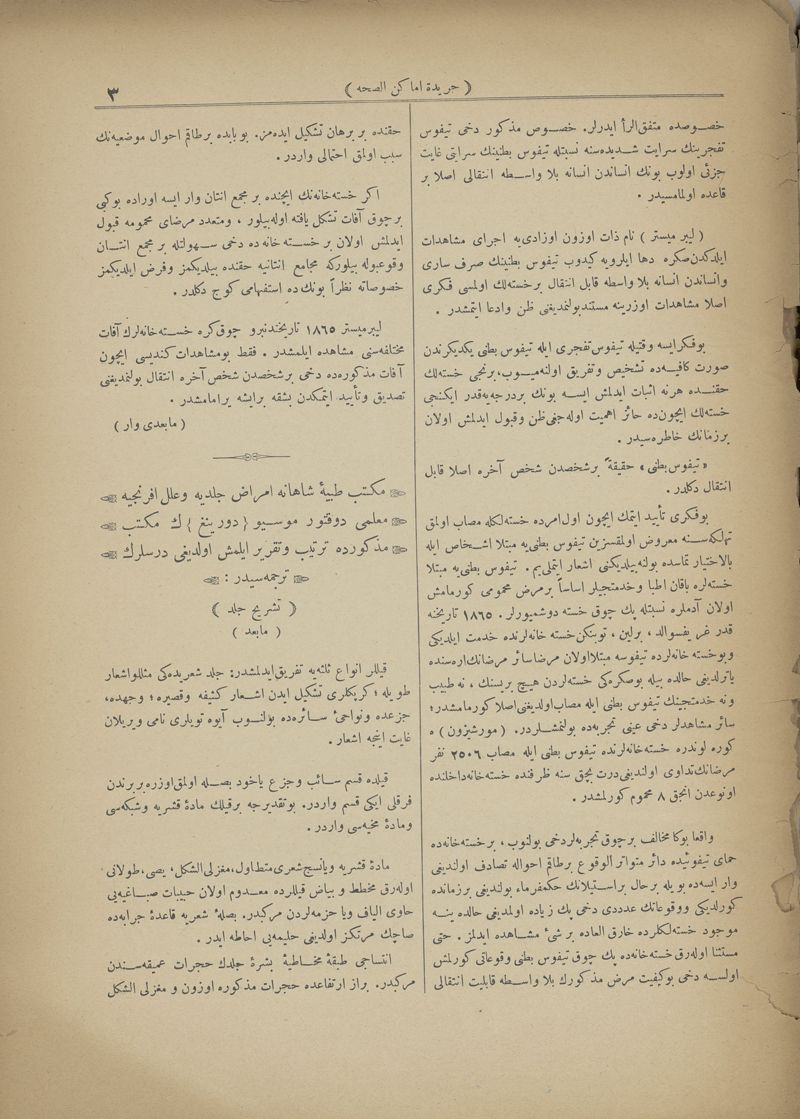 ( جريدۀ اماكن الصحه )
٣
خصـوصده متفق الرأ ايدرلر. خصـوص مذكور دخى تيفوس
تفجرينك سرايت شـديده‌سنه نسبتله تيفوس بطنينك سرايتى غايت
جزئى اولوب بونك انساندن انسانه بلا واسـطه انتقالى اصلا بر
قاعده اولمامسيدر .
( ليبر ميستر ) نام ذات اوزون اوزادى‌يه اجراى مشاهدات
ايلدكدن‌صكره دها ايلرويه كيدوب تيفوس بطنينك صرف سارى
وانساندن انسانه بلا واسطه قابل انتقال برخسته‌لك اولمسى فكرى
اصلا مشاهدات اوزرينه مستندبولنمديغنى ظن وادعا ايتمشدر .
بوفكرايسه وقتيله تيفوس تفجرى ايله تيفوس بطنى يكديكرندن
صورت كافيـه‌ده تشخيص وتفريق اولنه‌ميـوب،برنجى خسته‌لك
حقنـده هرنه اثبات ايدلمش ايسـه بونك بردرجه‌يه‌قدر ايكنجى
خسته‌لك ايچون‌ده حائز اهميت اوله‌جغى‌ظن وقبول ايدلمش اولان
برزمانك خاطره‌سيدر .
«تيفوس بطنى» حقيقةً برشخصدن شخص آخره اصلا قابل
انتقال دكلدر .
بوفكرى تأييد ايتمك ايچون اول‌امرده خسته‌لكله مصاب اولمق
تهلكه‌سـنه معروض اولمقسزين تيفوس بطنى‌يه مبتلا اشـخاص ايله
بالاختيار تماسده بولنه‌بيلديكنى اشعار ايتملى‌يم . تيفوس بطنى‌يه مبتلا
خسته‌لره باقان اطبا وخدمتجيلر اساساً برمرض محمومى كورمامش
اولان آدملره نسبتله پك چوق خسته دوشميورلر. ١٨٦٥ تاريخنه
قدر غريفسوالد ، برلين ، توبنكن‌خسته خانه‌لرنده خدمت ايلديكى
وبوخسته خانه‌لرده تيفوسه مبتلااولان مرضاسائر مرضانك‌اره‌سنده
ياترلديغى حالده بيله بوصكره‌كى خسته‌لردن هيچ بريسنك ، نه طبيب
ونه خدمتجينك تيفوس بطنى ايله مصاب‌اولديغنى‌اصلا كورمامشدر؛
سائر مشاهدلر دخى عينى تجربه‌ده بولنمشـلردر. ( مورشيزون ) ه
كوره لوندره خسته‌خانه‌لرنده تيفوس بطنى ايله مصاب ٢٥٠٦ نفر
مرضانك‌تداوى اولنديغى‌درت بچق سنه ظرفنده خسته‌خانه‌داخلنده
اونوعدن انجق ٨ محموم كورلمشدر .
واقعا بوكا مخالف برچوق تجربه‌لردخى بولنوب ، برخسته‌خانه‌ده
حماى تيفوئيده دائر متواتر الوقوع برطاقم احواله تصادف اولنديغى
وار ايسه‌ده بويله برحال براسـتيلانك حكمفرماء بولنديغى برزمانده
كورلديكى ووقوعاتك عددى دخى پك زياده اولمديغى حالده ينـه
موجود خستـه‌لكلرده خارق العاده برشئ مشـاهده ايدلمز . حتى
مستثنا اوله‌رق خسته‌خانه‌ده پك چوق تيفوس بطنى وقوعاتى كورلمش
اولسـه دخى بوكيفيت مرض مذكورك بلا واسـطه قابليت انتقالى
حقنده بر برهان تشكيل ايده‌مز. بو بابده برطاقم احوال موضعيه‌نك
سبب اولمق احتمالى واردر .
اكر خسته‌خانه‌نك ايچنده بر مجمع انتان وار ايسه اوراده بوكبى
برچوق آفات تشكل يافته اوله‌بيلور ، ومتعدد مرضاى محمومه قبول
ايدلمش اولان بر خسـته خانه‌ده دخى سـهولتله بر مجمع انتـان
وقوعبوله بيلوركه مجامع انتانيه حقنده بيلديكمز وفرض ايلديكمز
خصوصاته نظراً بونك‌ده استفهامى كوچ دكلدر .
ليبرميستر ١٨٦٥ تاريخندنبرو چوق‌كره خسـته‌خانه‌لرك آفات
مختلفه‌سنى مشاهده ايلمشدر . فقط بومشاهدات كنديسى ايچون
آفات مذكوره‌ده دخى برشخصدن شخص آخره انتقال بولنمديغنى
تصديق وتأييد ايتمكدن بشقه برايشه يرامامشدر .
( مابعدى وار )
مكتب طبيۀ شاهانه امراض جلديه وعلل افرنجيه
معلمى دوقتور موسيو {دورينغ}ك مكتب
مذكورده ترتيب وتقرير ايلمش اولديغى درسلرك
ترجمه‌سيدر :
( تشريح جلد )
( مابعد )
قيللر انواع ثلثه‌يه تفريق‌ايدلمشدر: جلد شعريده‌كى مثللواشعار
طويله ؛ كرپكلرى تشكيل ايدن اشـعار كثيفه وقصيره ؛ وجهده،
جزعده ونواحئ سـائره‌ده بولنـوب آيوه تويلرى نامى ويريلان
غايت اينجه اشعار .
قيلده قسم سـائب وجزع ياخود بصـله اولمق‌اوزره بربرندن
فرقلى ايكى قسم واردر. بوتقديرجه برقيلك مادۀ قشريه وشبكه‌سى
ومادۀ مخيه‌سى واردر .
مادۀ قشريه ويانسج‌شعرى‌متطاول، مغزلى‌الشكل، يصى، طولانى
اوله‌رق مخطط و بياض قيللرده معـدوم اولان حبيبات صبـاغيه‌يى
حاوى الياف ويا حزمه‌لردن مركبدر. بصلۀ شعريه قاعدۀ جرابه‌ده
صاچك مرتكز اولديغى حليمه‌يى احاطه ايدر .
انتساجى طبقۀ مخـاطيۀ بشرۀ جلدك حجرات عميقه‌سـندن
مركبدر. براز ارتفاعده حجرات مذكوره اوزون و مغزلى الشكل